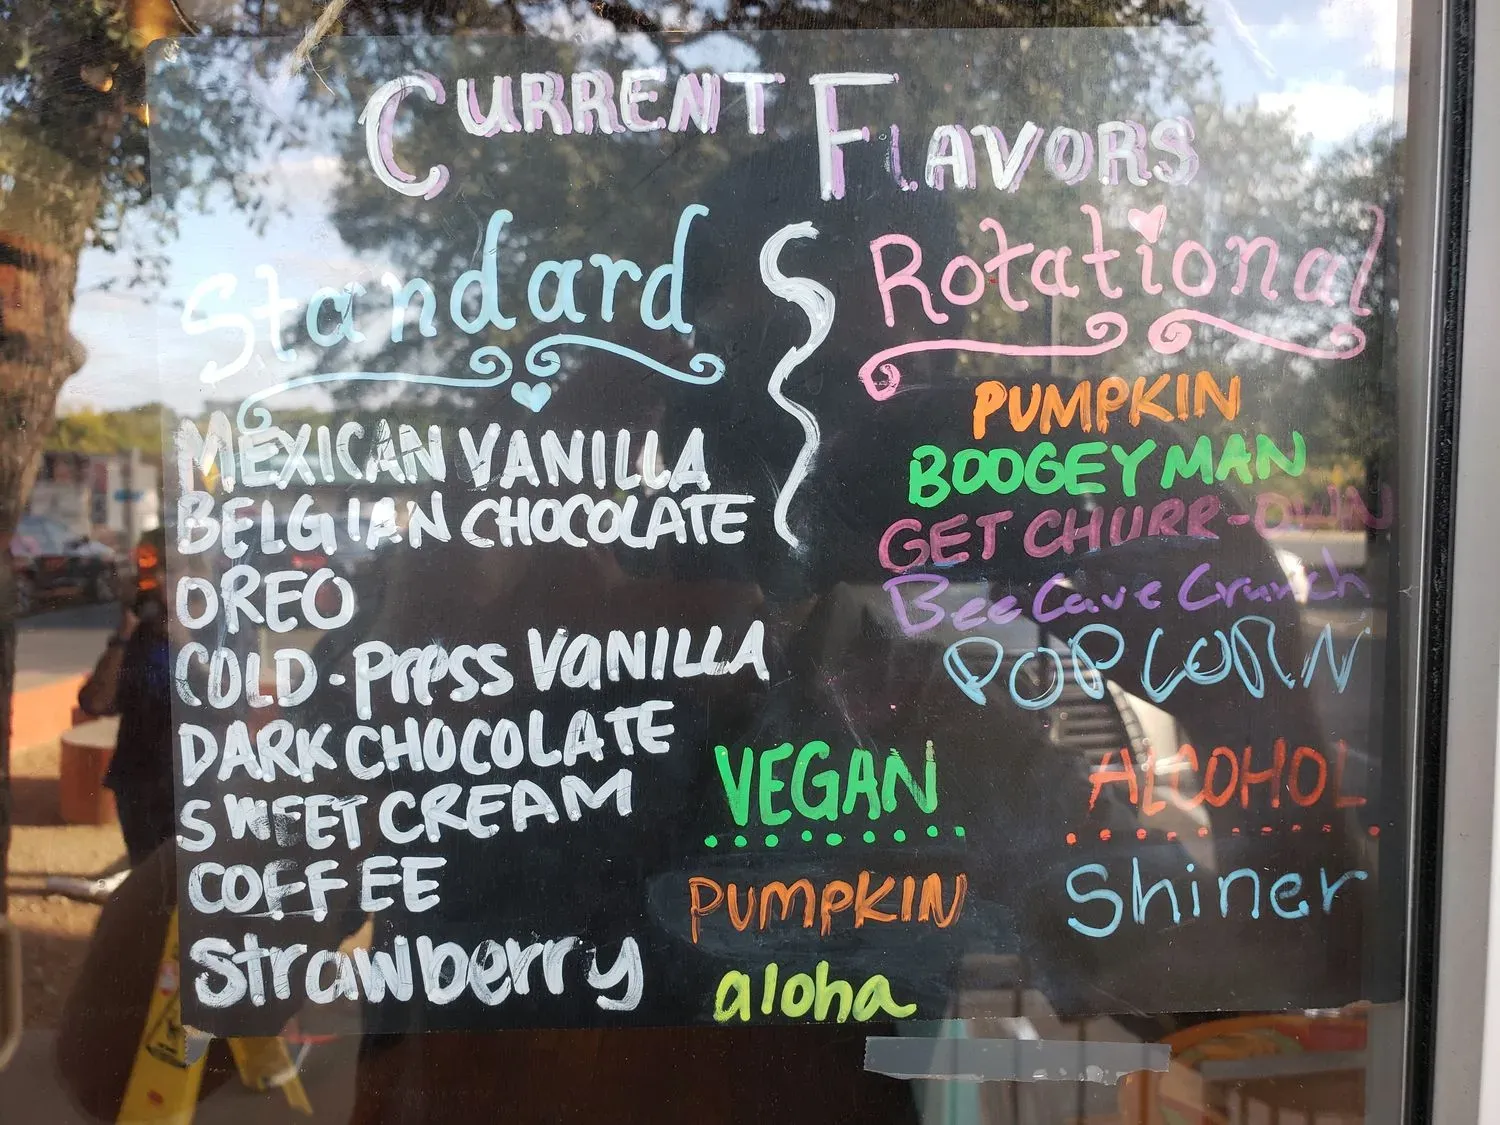 CURRENT FLAVORS
Standard
MEXICAN VANILLA
BELGIAN CHOCOLATE
OREO
COLD-PRESS VANILLA
DARK CHOCOLATE
SWEET CREAM
COFFEE
Strawberry
Rotational
PUMPKIN
BOOGEYMAN
GET CHURR-OWN
Bee Cave Crunch
POPCORN
VEGAN
PUMPKIN
aloha
ALCOHOL
Shiner